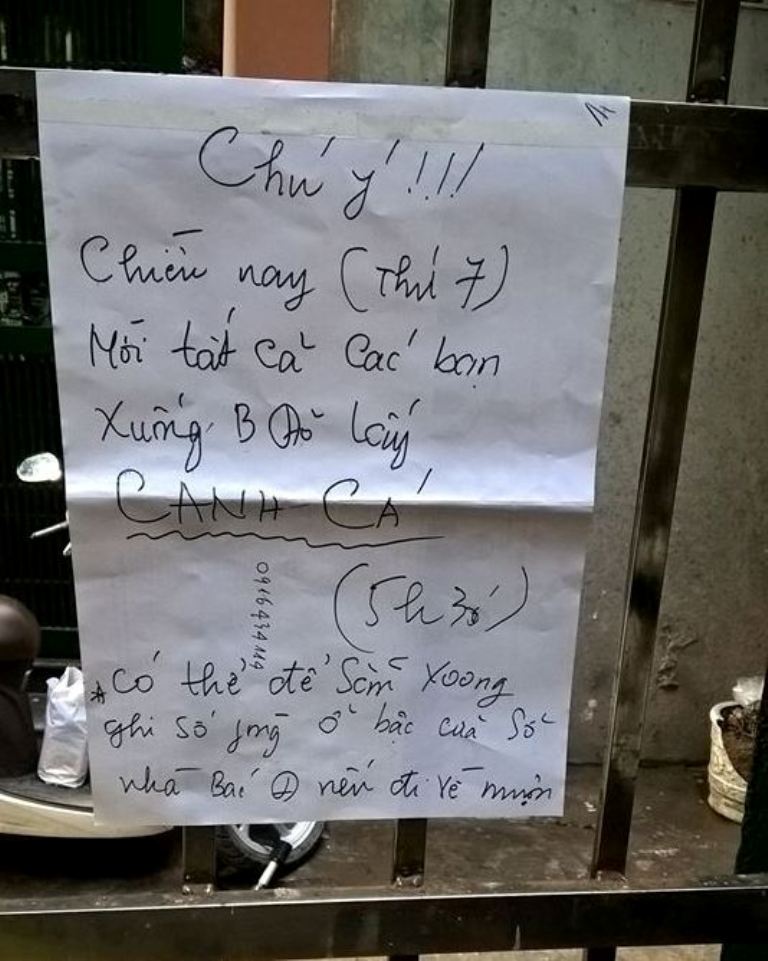 Chú ý !!!
Chiều nay (Thứ 7)
Mời tất cả các bạn
Xuống B lấy
CANH CÁ
(5h30')
0916434119
* Có thể để sẵn xoong
ghi số ở bậc cửa sổ
nhà Bác nếu đi về muộn